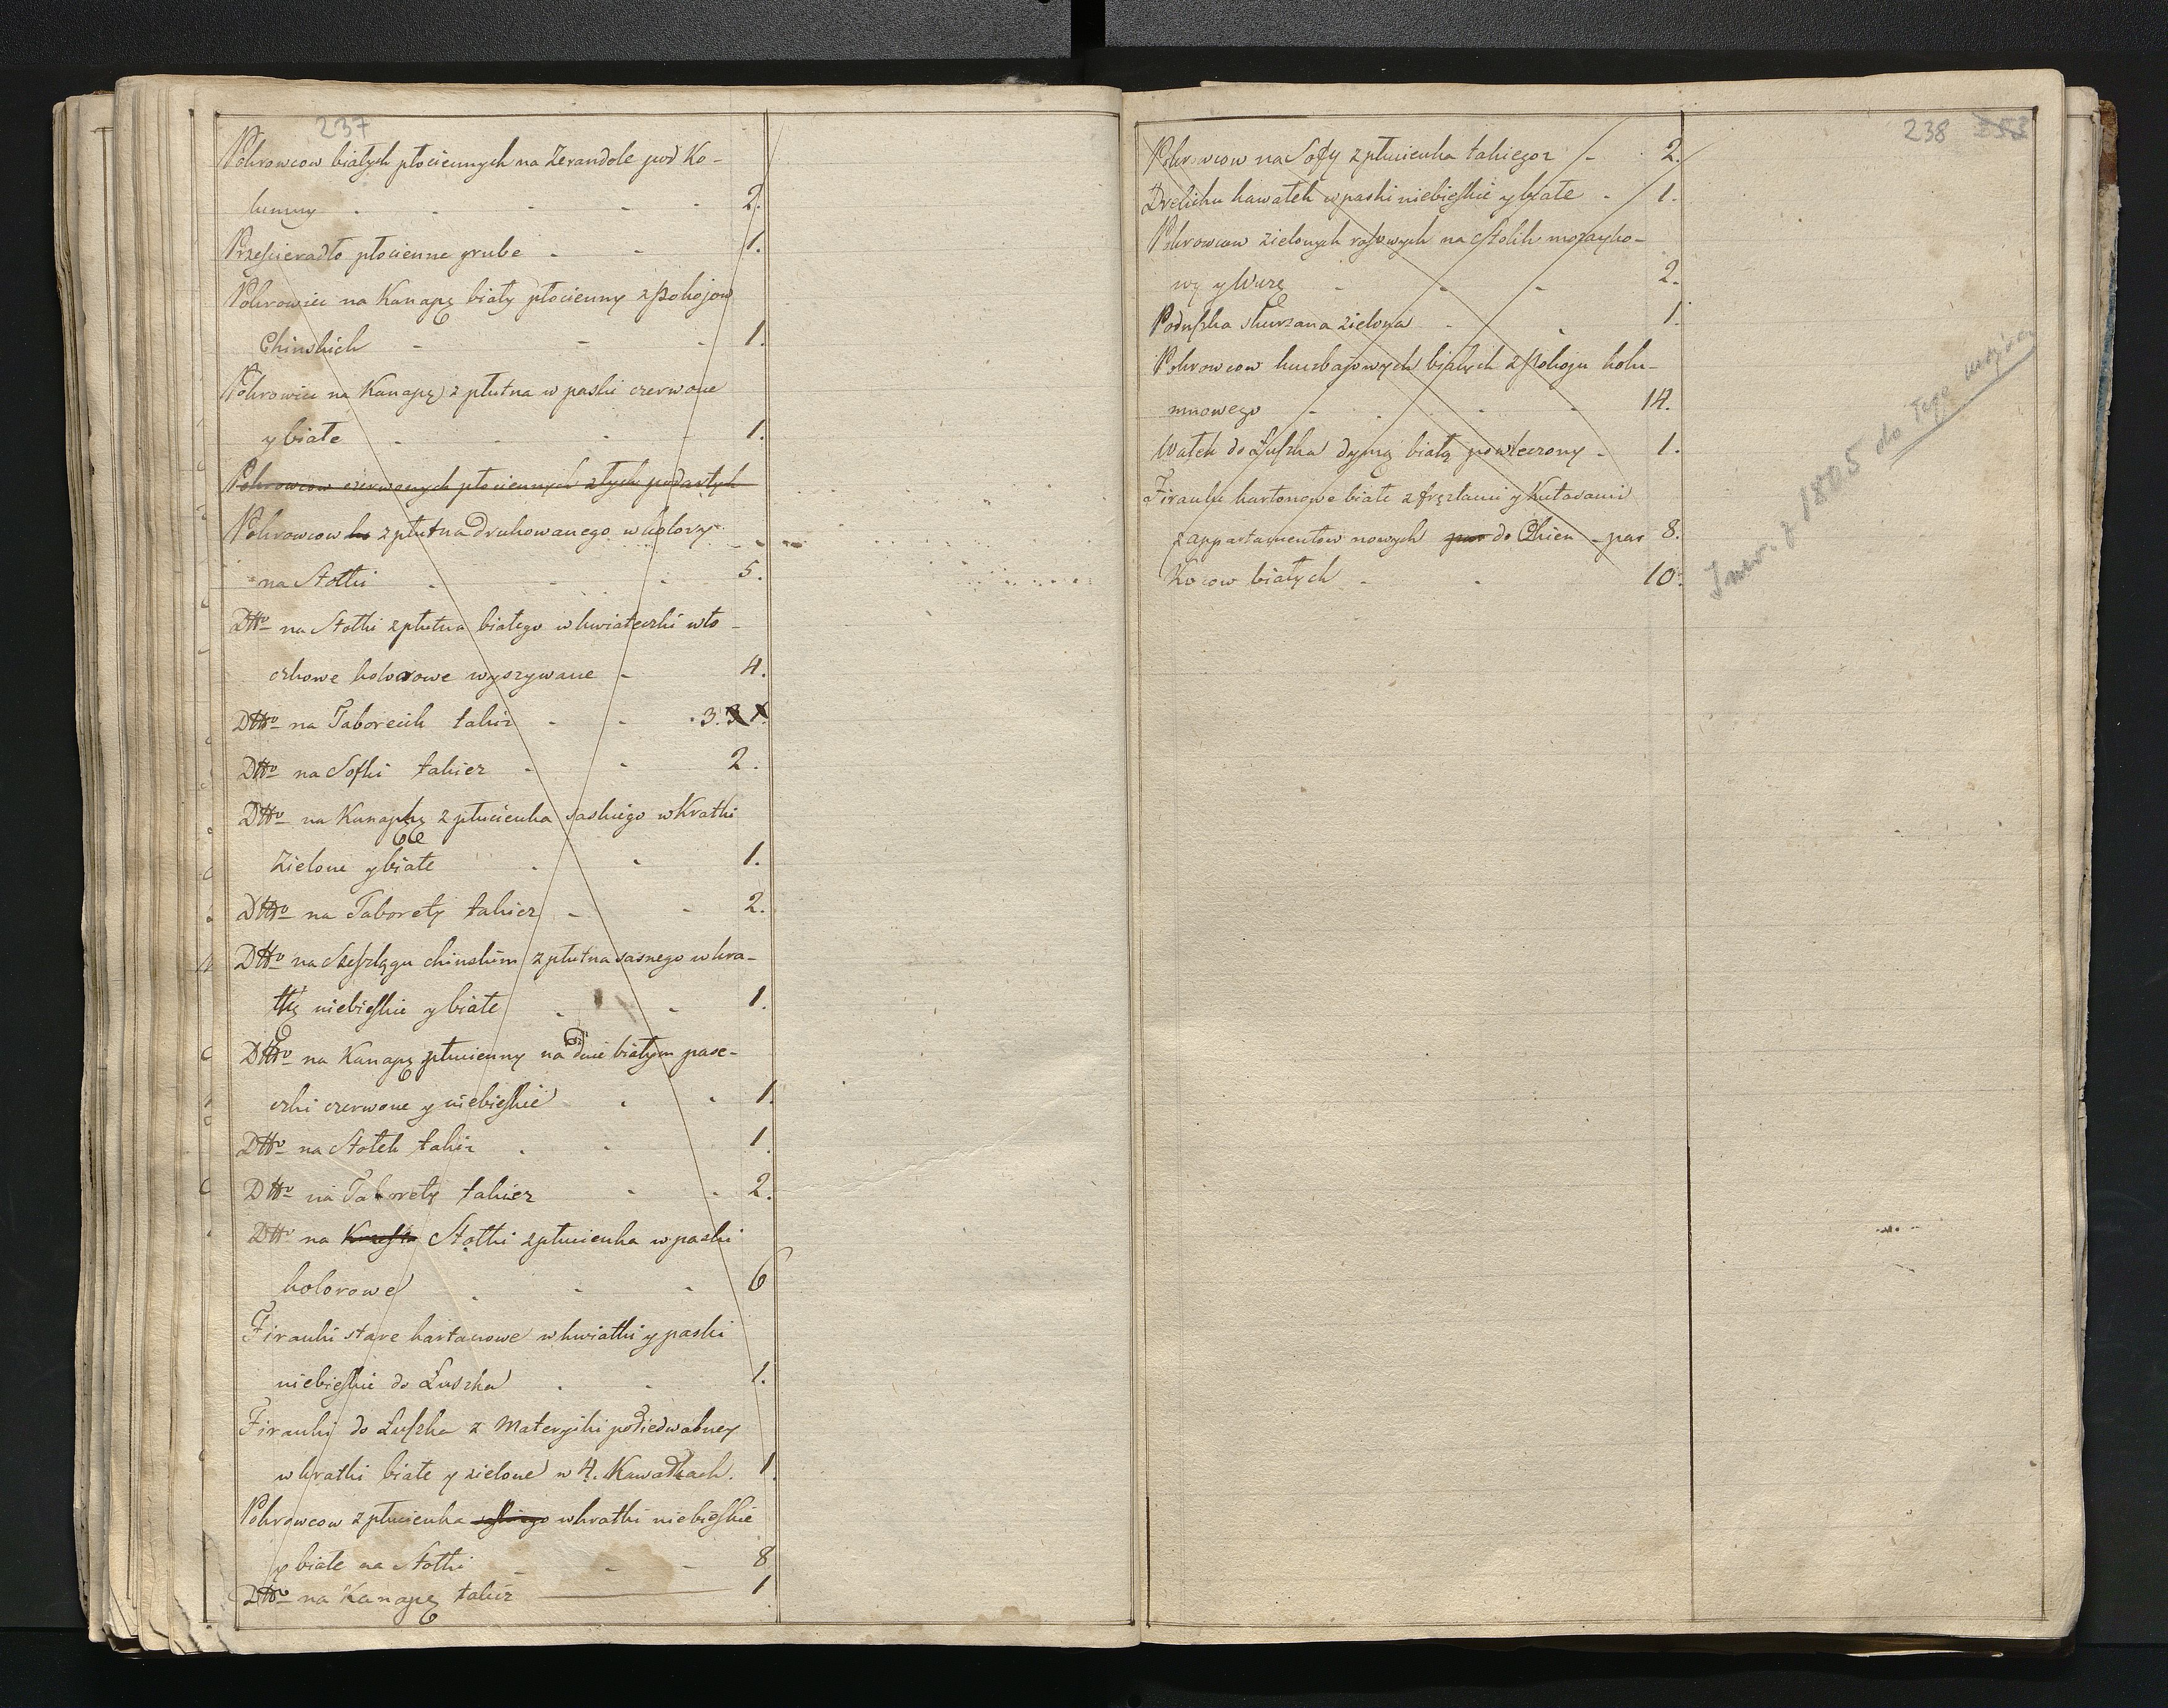 237
Pokrowcow białych płociennych na Zerandole pod Ko-
lumny - - - - - 2.
Prześcieradło płocienne grube - - 1.
Pokrowiec na Kanapę biały płocienny z Pokojow
Chinskich - - - 1.
Pokrowiec na Kanapę z płutna w paski czerwone
y białe - - - - 1.
Pokrowcow czerwonych płociennych złych podartych
Pokrowcow z płutna drukowanego w kolory
na Stołki - - - 5.
Dtto na Stołki z płutna białego w kwiateczki wło-
czkowe kolorowe wyszywane - 4.
Dtto na Taborecik takiż - - 3.
Dtto na Sofki takież - - 2.
Dtto na Kanapkę z płucienka saskiego w Kratki
Zielone y białe - - 1.
Dtto na Taborety takież - - 2.
Dtto na Szeszlągu chinskim z płutna sasnego w kra-
tkę niebieskie y białe - - 1.
Dtto na Kanapę płucienny na dnie białym pase-
czki czerwone y niebieskie - - 1.
Dtto na Stołek takiż - - 1.
Dtto na Taborety takież - - 2.
Dtto na Krzesła Stołki z płucienka w paski
kolorowe - - - 6
Firanki stare kartonowe w kwiatki y paski
niebieskie do Łuszka - - 1.
Firanki do Łuszka z Materyiki pośiedwabney
w kratki białe y zielone w 4. Kawałkach. 1.
Pokrowcow z płucienka w kratki niebieskie
y białe na Stołki - - - 8
Dtto na Kanapę takiż 1
238 253
Pokrowcow na Sofy z płucienka takiegoż - 2.
Drelichu kawałek w paski niebieskie y białe - 1.
Pokrowcow zielonych raszowych na Stolik mozayko-
wy y Wazę - - - 2.
Poduszka skurzana zielona - - 1.
Pokrowcow kuczbajowych białych z Pokoju kolu-
mnowego - - - - 14.
Wałek do Łuszka dymą białą powleczony - 1.
Firanki kartonowe białe z fręzlami y Kutasami
z appartamentow nowych par do Okien - par 8.
Kocow białych - - 10.
Inw. z 1805 do tego